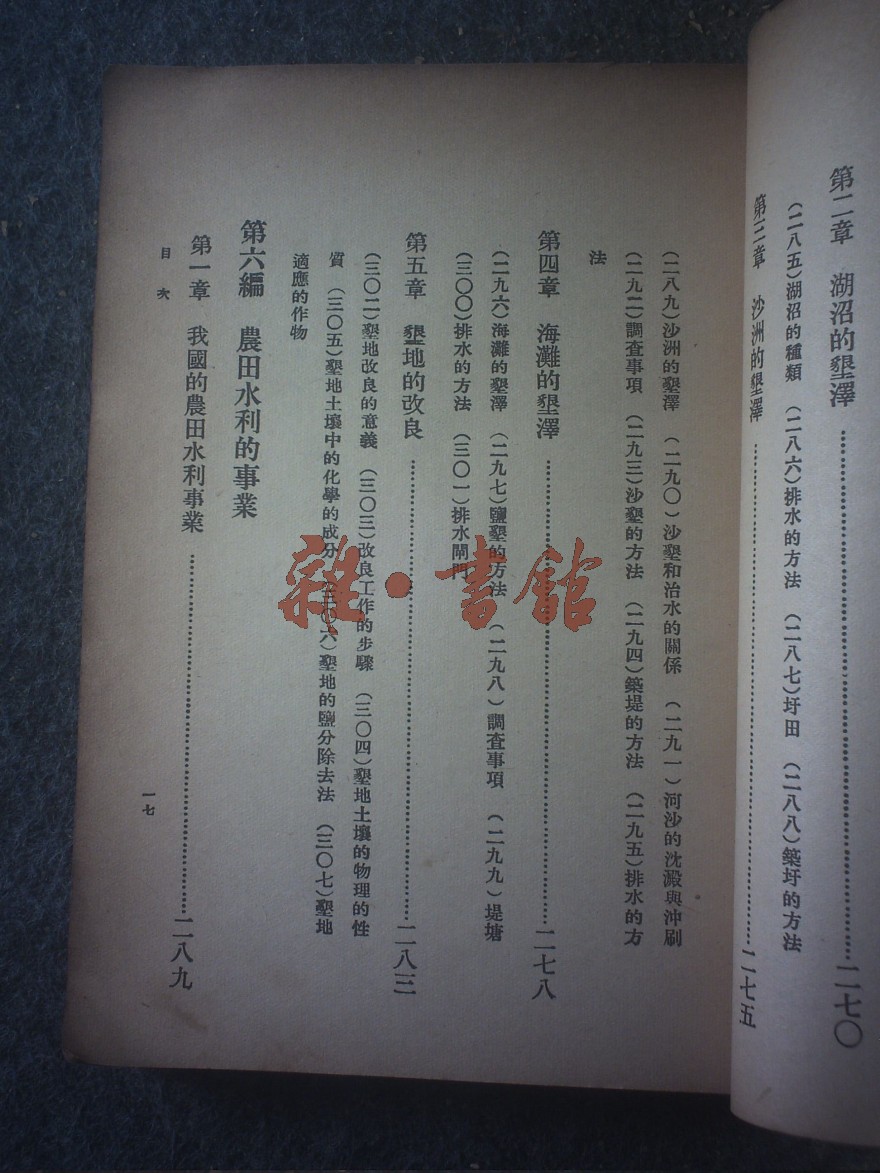 第二章　湖沼的墾澤……二七〇
(二八五)湖沼的種類　(二八六)排水的方法　(二八七)圩田　(二八八)築圩的方法
第三章　沙洲的墾澤……二七五
(二八九)沙洲的墾澤　(二九〇)沙墾和治水的關係　(二九一)河沙的沈澱與沖刷
(二九二)調查事項　(二九三)沙墾的方法　(二九四)築堤的方法　(二九五)排水的方
法
第四章　海灘的墾澤……二七八
(二九六)海灘的墾澤　(二九七)鹽墾的方法　(二九八)調查事項　(二九九)堤塘
(三〇〇)排水的方法　(三〇一)排水閘門
第五章　墾地的改良……二八三
(三〇二)墾地改良的意義　(三〇三)改良工作的步驟　(三〇四)墾地土壤的物理的性
質　(三〇五)墾地土壤中的化學的成分　(三〇六)墾地的鹽分除去法　(三〇七)墾地
適應的作物
第六編　農田水利的事業
第一章　我國的農田水利事業……二八九
目次
一七
雜·書館